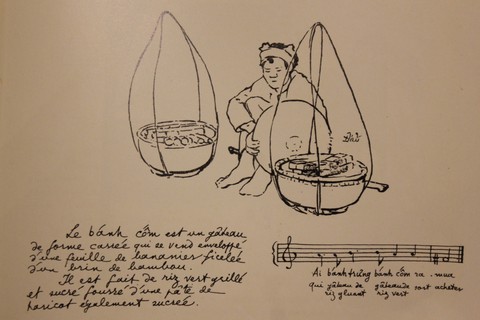 Le bánh cốm est un gâteau
de forme carrée qui se vend enveloppé
d'une feuille de bananier ficelée
d'un brin de bambou.
Il est fait de riz vert grillé
et sucré fourré d'une pâte de
haricot également sucrée.
Ai bánh trưng bánh cốm ra . mua
qui gâteau de gâteau de sort acheter
riz gluant riz vert